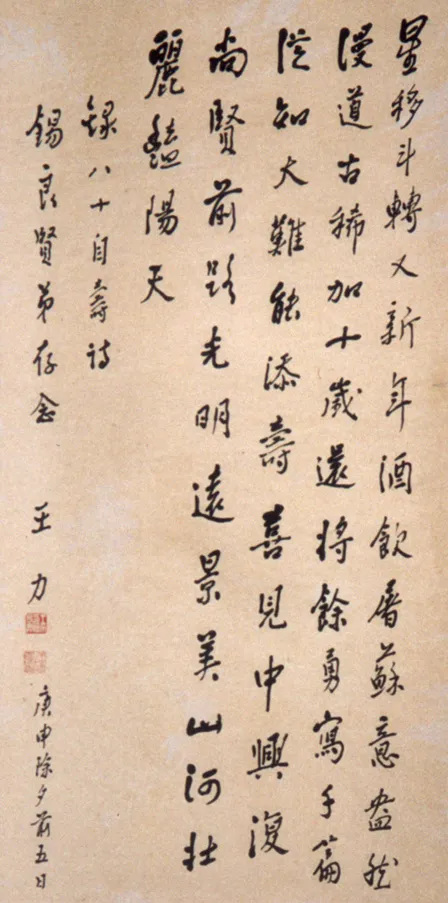 星移斗轉又新年酒飲屠蘇意盎然
漫道古稀加十歲還將餘勇寫千篇
從知大難能添壽喜見中興復
尚賢前路光明遠景美山河壯
麗豔陽天
錄八十自壽詩
錫良賢弟存念 王力
庚申除夕前五日